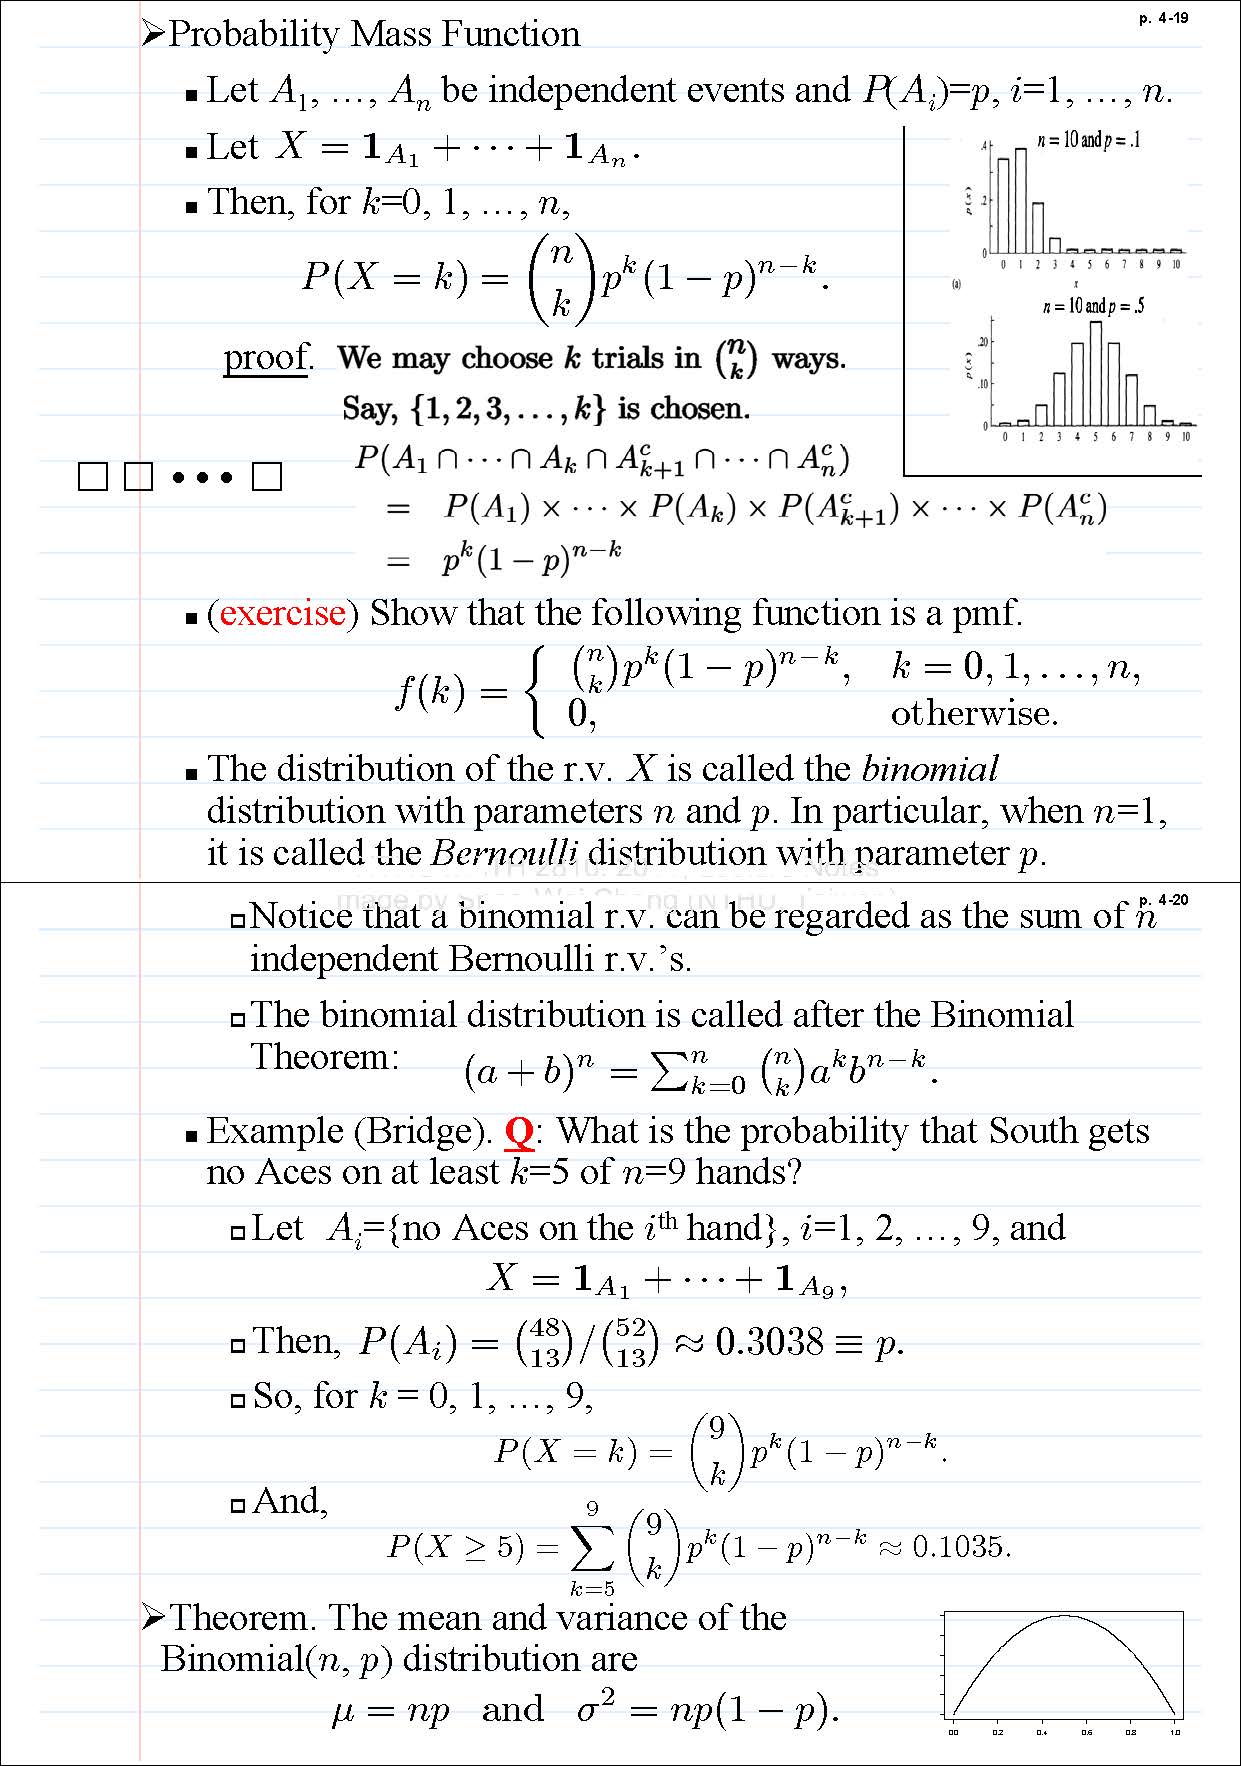 p. 4-19
➢Probability Mass Function
▪ Let A₁, …, Aₙ be independent events and P(Aᵢ)=p, i=1, …, n.
▪ Let X = 𝟏_{A₁} + ··· + 𝟏_{Aₙ}.
▪ Then, for k=0, 1, …, n,
P(X = k) = \binom{n}{k} p^k (1 − p)^{n−k}.
n = 10 and p = .1
p(x)
.4
.2
0
0 1 2 3 4 5 6 7 8 9 10
(a) x
n = 10 and p = .5
p(x)
.20
.10
0
0 1 2 3 4 5 6 7 8 9 10
proof. We may choose k trials in \binom{n}{k} ways.
Say, {1, 2, 3, . . . , k} is chosen.
P(A₁ ∩ ··· ∩ A_k ∩ A^c_{k+1} ∩ ··· ∩ A^c_n)
= P(A₁) × ··· × P(A_k) × P(A^c_{k+1}) × ··· × P(A^c_n)
= p^k (1 − p)^{n−k}
□ □ • • • □
▪ (exercise) Show that the following function is a pmf.
f(k) = { \binom{n}{k} p^k (1 − p)^{n−k}, k = 0, 1, . . . , n,
0, otherwise.
▪ The distribution of the r.v. X is called the binomial
distribution with parameters n and p. In particular, when n=1,
it is called the Bernoulli distribution with parameter p.
p. 4-20
□ Notice that a binomial r.v. can be regarded as the sum of n
independent Bernoulli r.v.’s.
□ The binomial distribution is called after the Binomial
Theorem: (a + b)^n = ∑_{k=0}^{n} \binom{n}{k} a^k b^{n−k}.
▪ Example (Bridge). Q: What is the probability that South gets
no Aces on at least k=5 of n=9 hands?
□ Let Aᵢ={no Aces on the i^{th} hand}, i=1, 2, …, 9, and
X = 𝟏_{A₁} + ··· + 𝟏_{A₉},
□ Then, P(Aᵢ) = \binom{48}{13} / \binom{52}{13} ≈ 0.3038 ≡ p.
□ So, for k = 0, 1, …, 9,
P(X = k) = \binom{9}{k} p^k (1 − p)^{n−k}.
□ And,
P(X ≥ 5) = ∑_{k=5}^{9} \binom{9}{k} p^k (1 − p)^{n−k} ≈ 0.1035.
➢Theorem. The mean and variance of the
Binomial(n, p) distribution are
μ = np and σ² = np(1 − p).
0.0 0.2 0.4 0.6 0.8 1.0